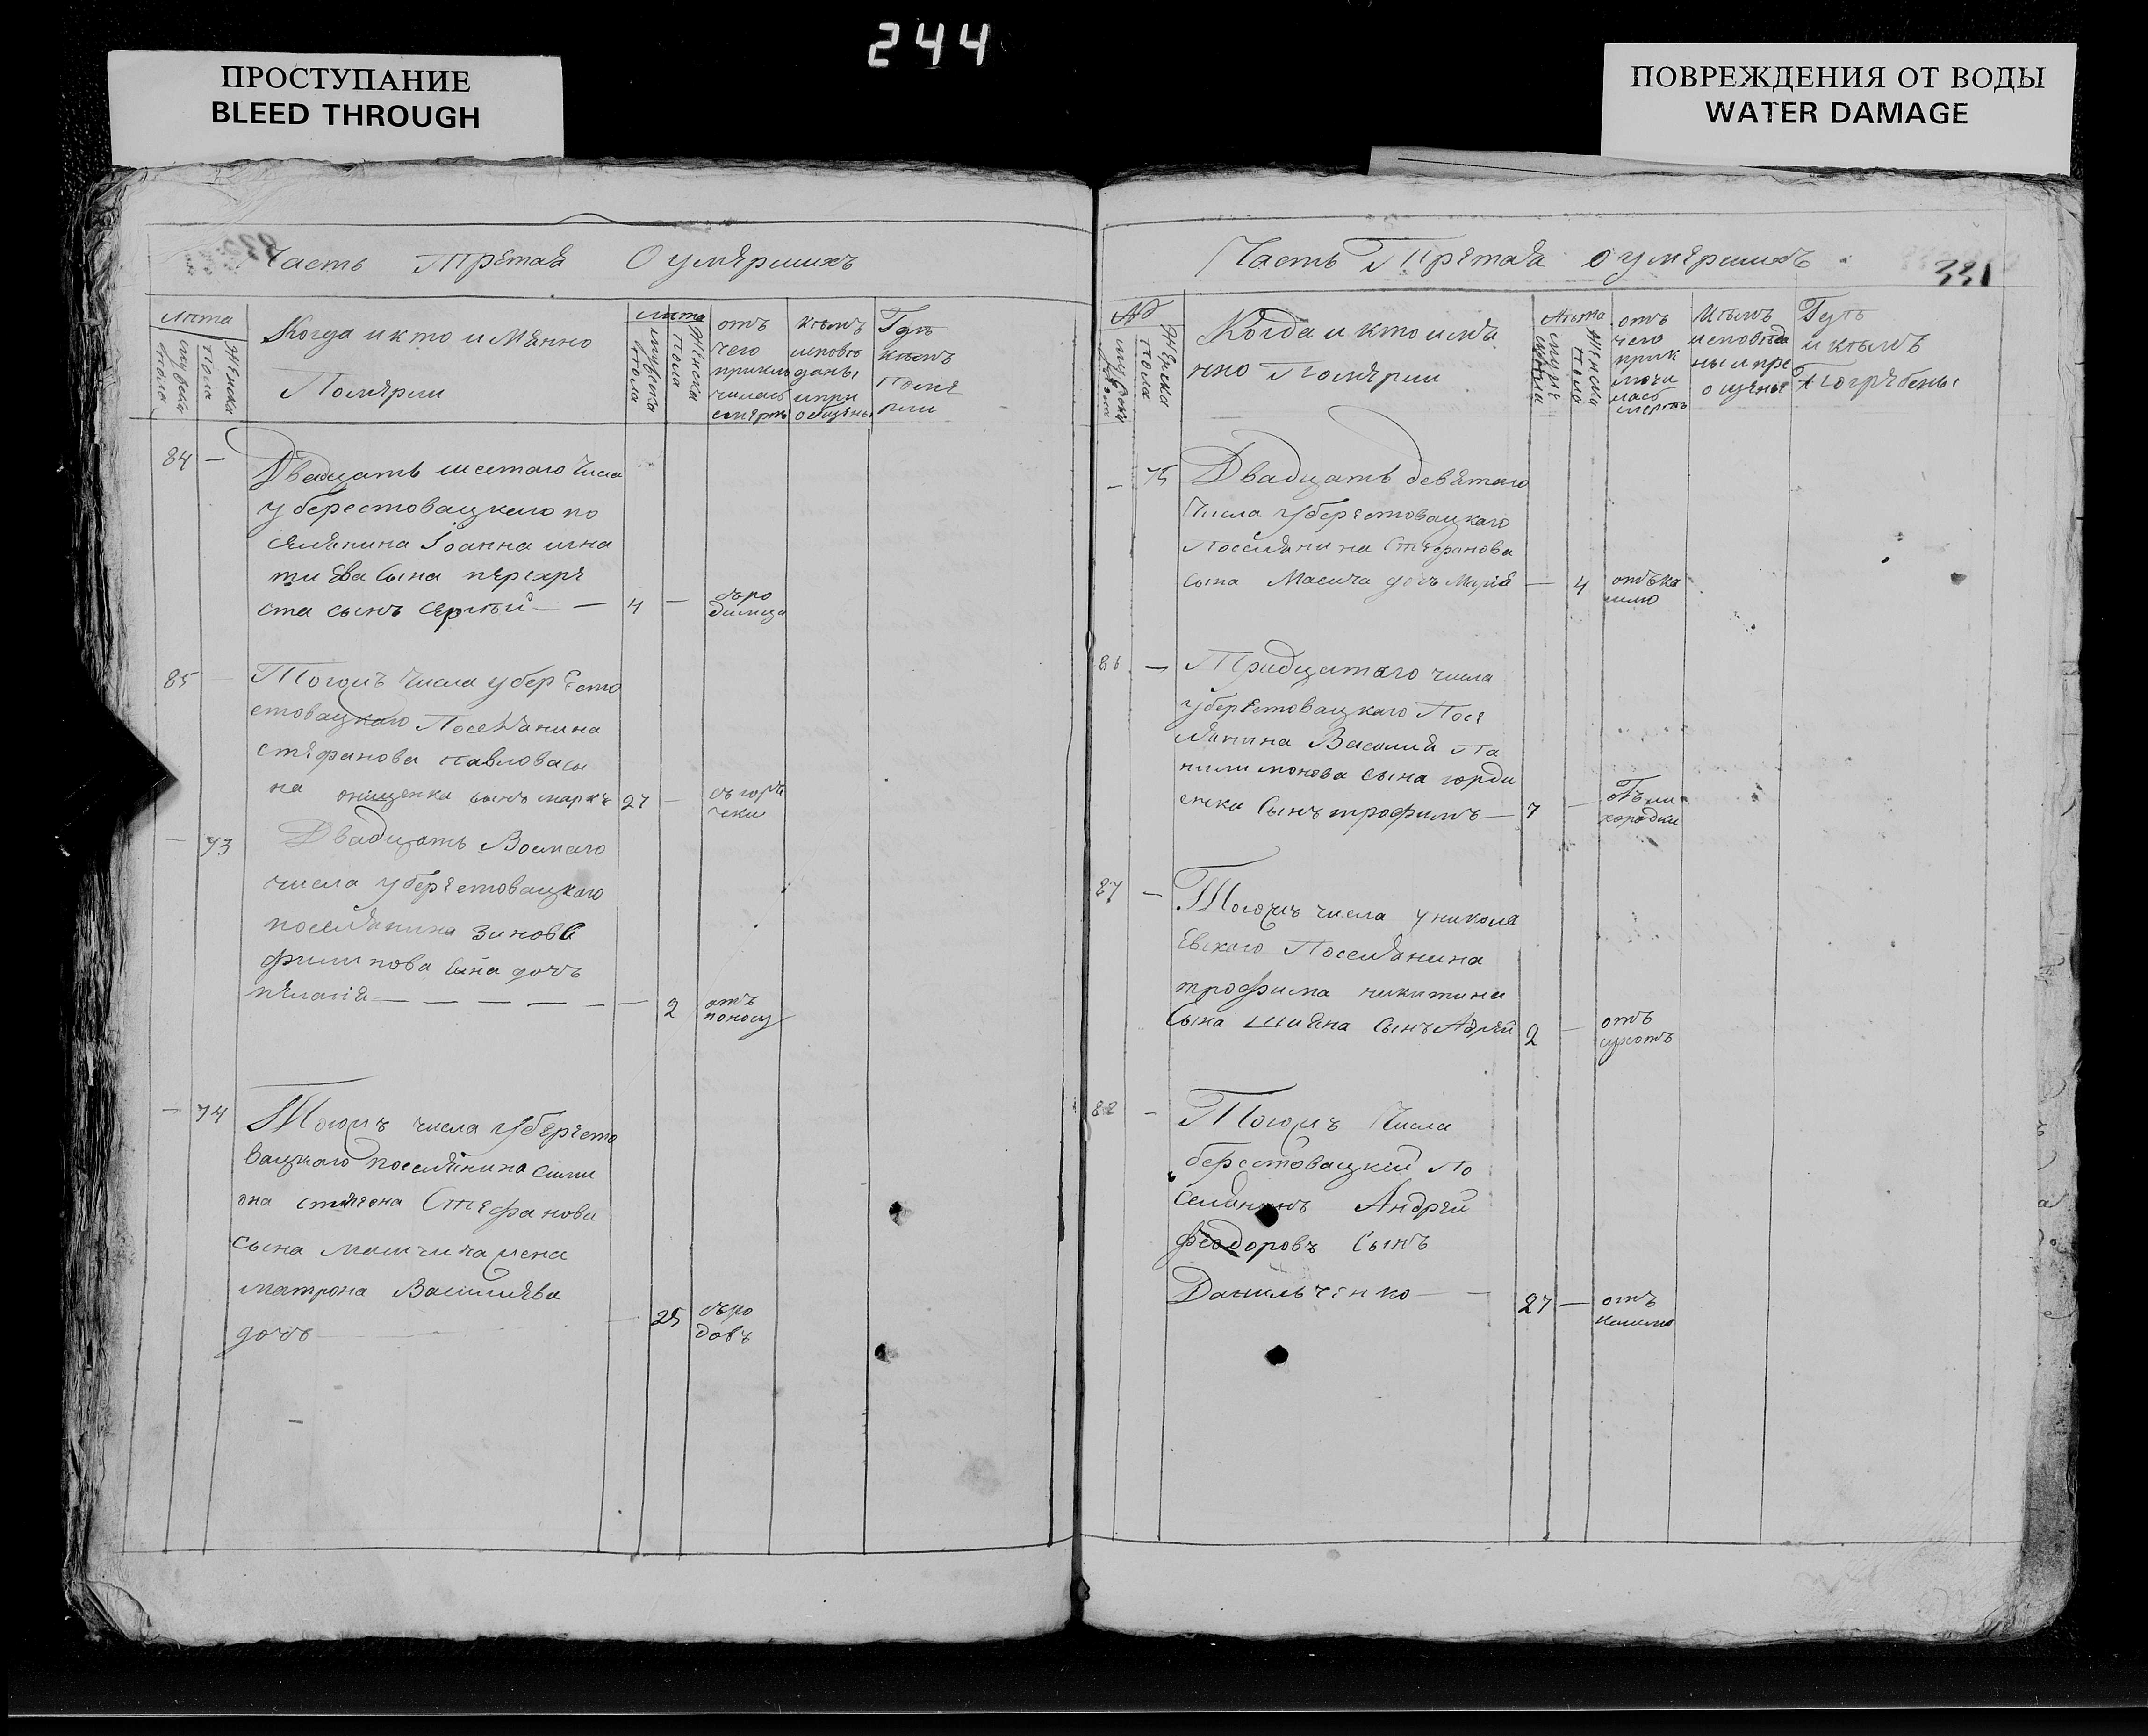 244
ПРОСТУПАНИЕ
BLEED THROUGH
ПОВРЕЖДЕНИЯ ОТ ВОДЫ
WATER DAMAGE
Часть Третая О умерших
лета
мужска пола
женска пола
Когда и кто имянно
Померли
лета
мужска пола
женска пола
отъ
чего
приклю
чилась
смерть
кемъ
исповѣ
даны
и при
общены
Гдѣ
84 —
Двадцать шестаго числа
у берестовацкаго по
селянина Іоанна игна
тиева сына перехре
ста сынъ сергѣй — — 4 —
85 —
Тогожъ числа у берѣсто
стовацкаго Поселянина
стефанова павлова сы
на онищенка сынъ марко 27 —
— 73
Двадцать Восмаго
числа у берестовацкаго
поселянина
филипова сына дочь
пелагія — — — — — — 2 отъ
поносу
— 74
Тогожъ числа у берѣсто
вацкаго поселянина сими
она Стефанова
сына жена
матрона Василиева
дочь — 25 съ ро
довъ
Часть Третая о умершихъ
331
№
мужска пола
женска пола
Когда и кто имя
нно Померли
лѣта
женска пола
отъ
чего
прик
лючи
лась
смерть
Кемъ
исповеда
ны и прі
общены
Гдѣ
и кемъ
погребены
— 75
Двадцать девятаго
числа у берестовацкаго
Поселянина Стефанова
сына дочь Марія — 4 отъ ка
шлю
86 —
Тридцатаго числа
у берестовацкаго Посе
лянина Василия Па
нтилимонова сына горди
енка сынъ трофимъ — 7 — отъ ли
хорадки
87 —
Тогожъ числа у никола
евскаго Поселянина
трофима никитина
сына шияна сынъ 2 — отъ
сухотъ
88 —
Тогожъ Числа
берестовацкій По
селянинъ Андрей
Феодоровъ сынъ
Данильченко — — 27 — отъ
кашлю